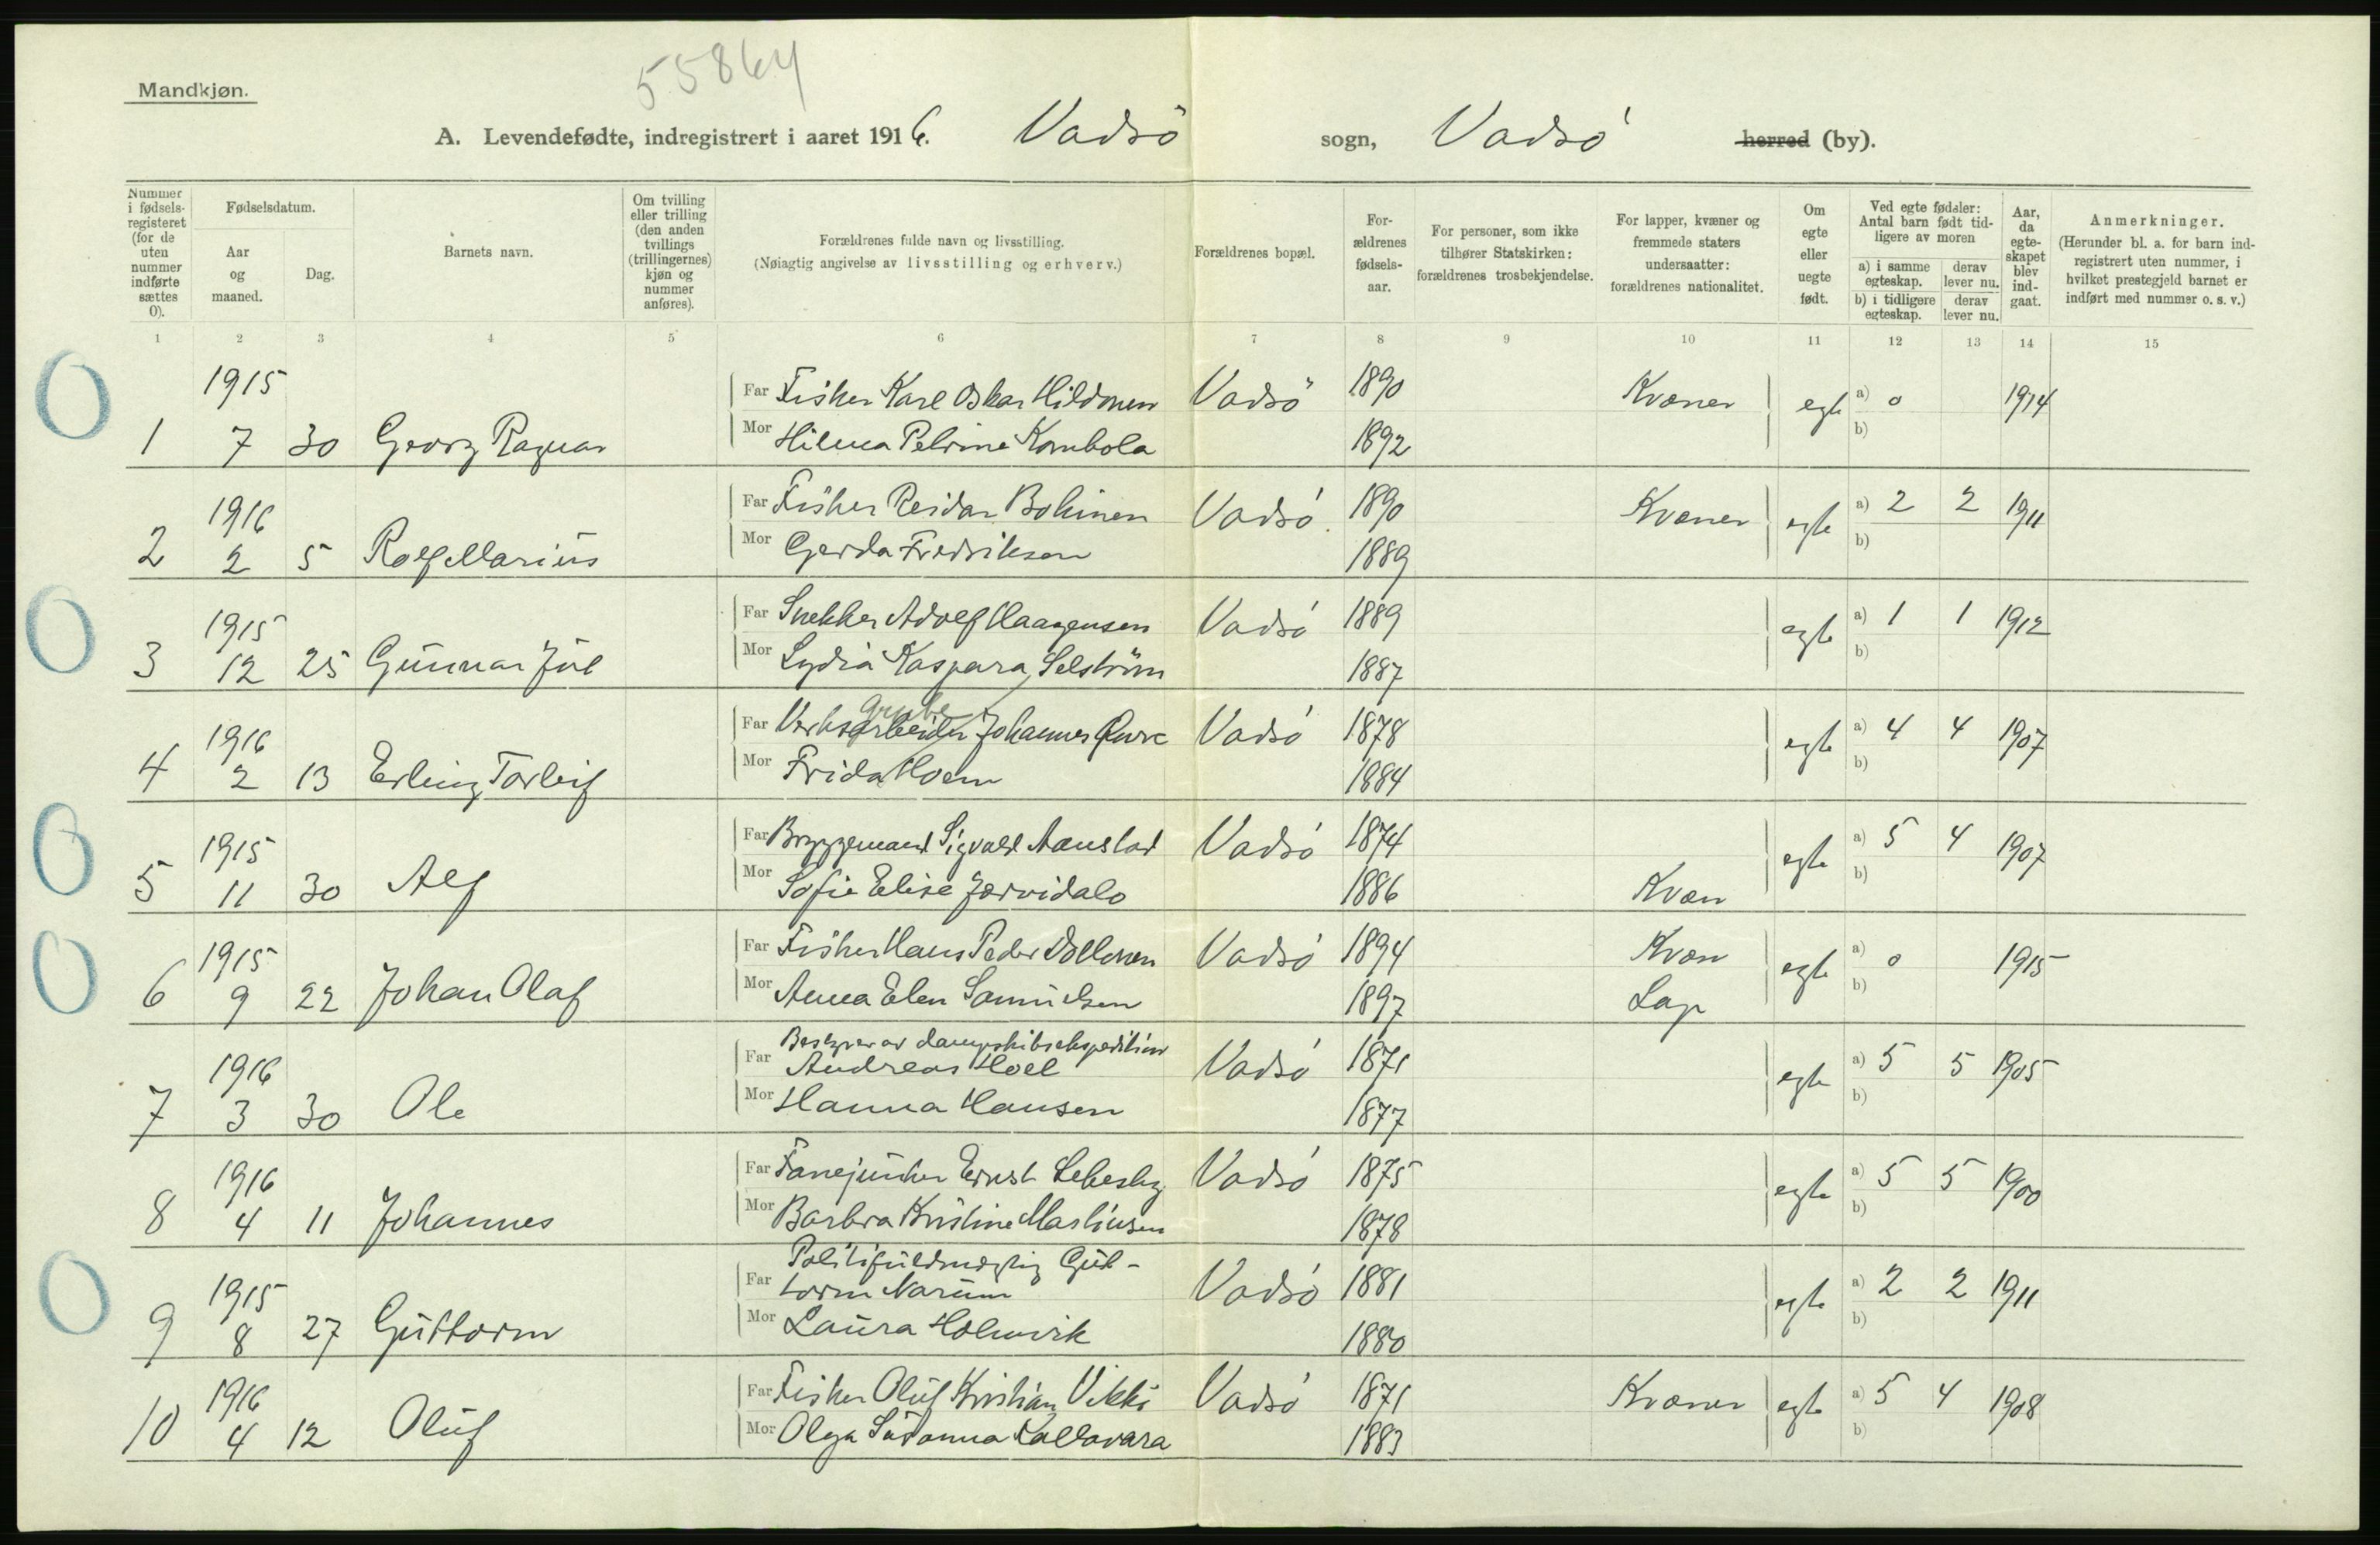 55864
Mandkjøn.
A. Levendefødte, indregistrert i aaret 1916. Vadsö sogn, Vadsö herred (by).
Nummer i fødselsregisteret (for de uten nummer indførte sættes 0).
Fødselsdatum.
Aar og maaned.
Dag.
Barnets navn.
Om tvilling eller trilling (den anden tvillings (trillingernes) kjøn og nummer anføres).
Forældrenes fulde navn og livsstilling.
(Nøiagtig angivelse av livsstilling og erhverv.)
Forældrenes bopæl.
For-ældrenes fødsels-aar.
For personer, som ikke tilhører Statskirken: forældrenes trosbekjendelse.
For lapper, kvæner og fremmede staters undersaatter: forældrenes nationalitet.
Om egte eller uegte født.
Ved egte fødsler: Antal barn født tid-ligere av moren
a) i samme egteskap. derav lever nu.
b) i tidligere egteskap. derav lever nu.
Aar, da egte-skapet blev ind-gaat.
Anmerkninger.
(Herunder bl. a. for barn ind-registrert uten nummer, i hvilket prestegjeld barnet er indført med nummer o. s. v.)
1 2 3 4 5 6 7 8 9 10 11 12 13 14 15
0 1915 Far Fisker Karl Oskar Hildonen Vadsö 1890 Kvæner egte a) 0 1914
1 7 30 Georg Ragnar Mor Hilma Petrine Kombola 1892 b)
1916 Far Fisker Reidar Bohinen Vadsö 1890 Kvæner egte a) 2 2 1911
2 2 5 Rolf Marius Mor Gerda Fredriksen 1889 b)
0 1915 Far Snekker Adolf Haagensen Vadsö 1889 egte a) 1 1 1912
3 12 25 Gunnar Jul Mor Lydia Kaspara Selström 1887 b)
Grube
1916 Far Verksarbeider Johannes Vadsö 1878 egte a) 4 4 1907
4 2 13 Erling Torleif Mor Frida Moen 1884 b)
0 1915 Far Bryggemand Sigvald Aanstad Vadsö 1874 egte a) 5 4 1907
5 11 30 Alf Mor Sofie Elise Jærvidalo 1886 Kvæn b)
0 1915 Far Fisker Hans Peder Vadsö 1894 Kvæn egte a) 0 1915
6 9 22 Johan Olaf Mor Anna Elen Samuelsen 1897 Lap b)
Bestyrer av dampskibsekspedition
1916 Far Andreas Hoel Vadsö 1871 egte a) 5 5 1905
7 3 30 Ole Mor Hanna Hansen 1877 b)
1916 Far Fanejunker Ernst Lebesby Vadsö 1875 egte a) 5 5 1900
8 4 11 Johannes Mor Barbra Kristine Martinsen 1878 b)
Politifuldmægtig Gut-
0 1915 Far torm Narum Vadsö 1881 egte a) 2 2 1911
9 8 27 Guttorm Mor Laura Holmvik 1880 b)
1916 Far Fisker Oluf Kristian Vikki Vadsö 1871 Kvæner egte a) 5 4 1908
10 4 12 Oluf Mor Olga Susanna Kallavara 1883 b)